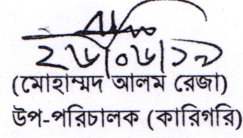 ২৬|০৬|১৯
(মোহাম্মদ আলম রেজা)
উপ-পরিচালক (কারিগরি)